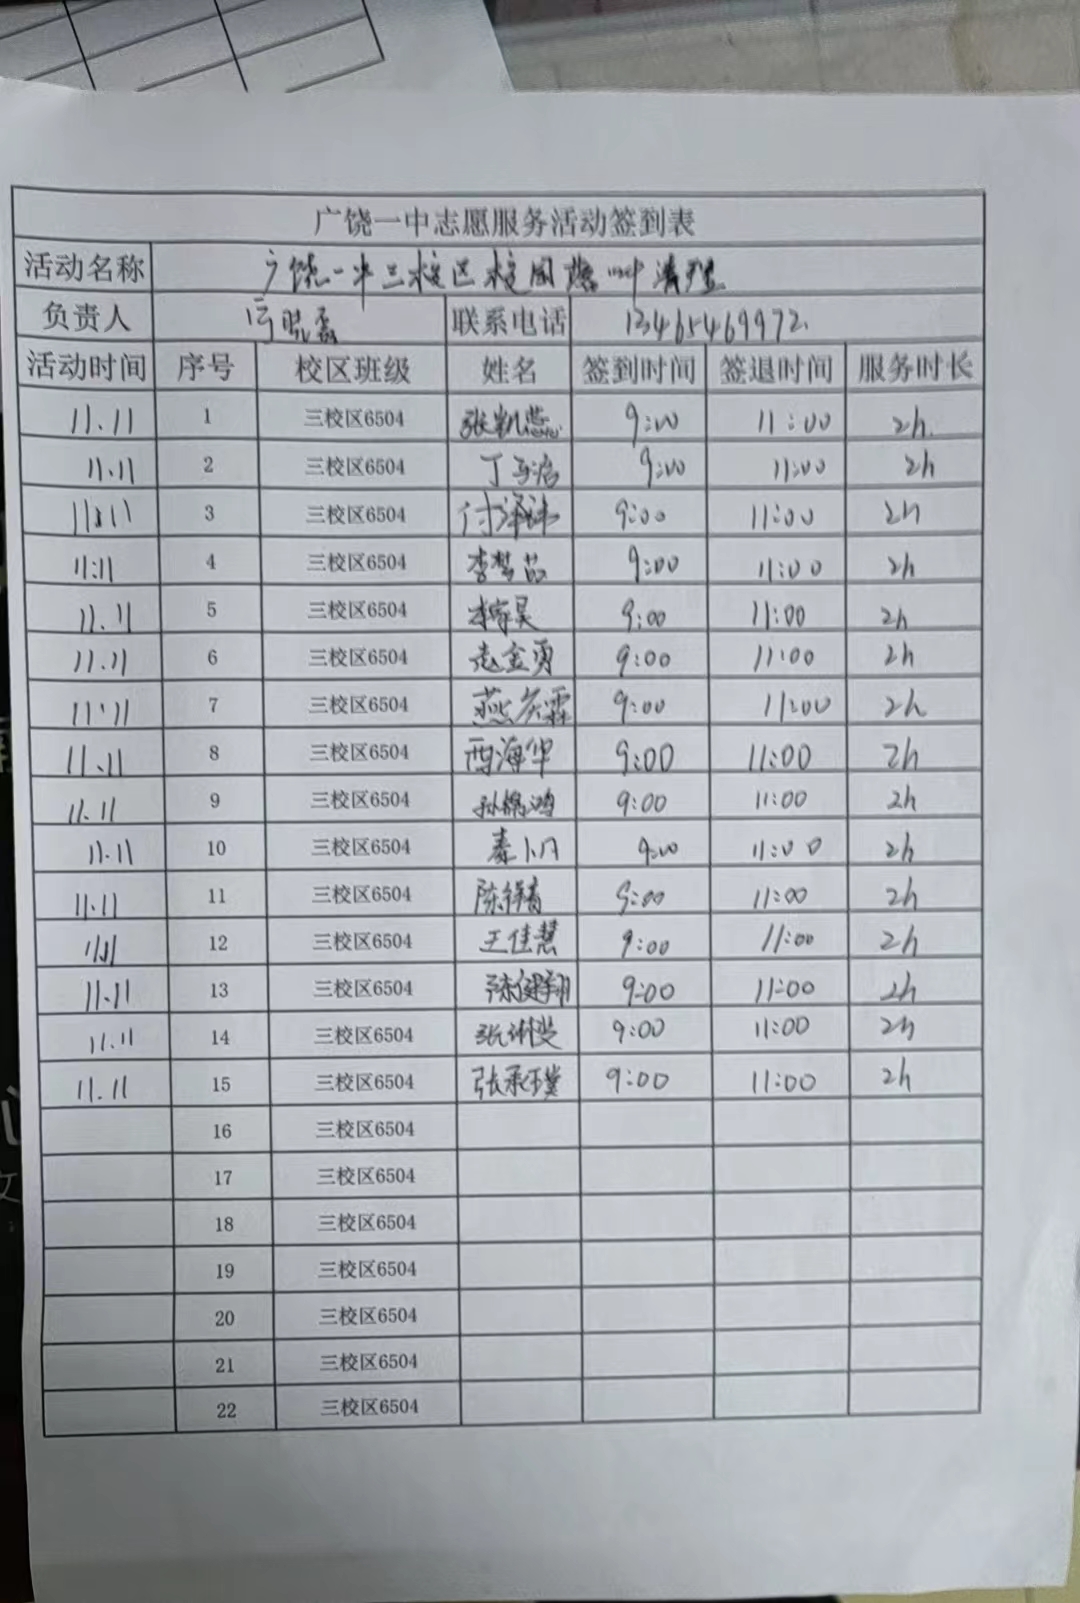 广饶一中志愿服务活动签到表
活动名称 广饶一中三校区校园落叶清理
负责人 联系电话 13465469972.
活动时间 序号 校区班级 姓名 签到时间 签退时间 服务时长
11.11 1 三校区6504 张凯蕊 9:00 11:00 2h.
11.11 2 三校区6504 9:00 11:00 2h
11.11 3 三校区6504 9:00 11:00 2h
11.11 4 三校区6504 李梦茹 9:00 11:00 2h
11.11 5 三校区6504 9:00 11:00 2h
11.11 6 三校区6504 赵金勇 9:00 11:00 2h
11.11 7 三校区6504 9:00 11:00 2h
11.11 8 三校区6504 西海华 9:00 11:00 2h
11.11 9 三校区6504 9:00 11:00 2h
11.11 10 三校区6504 9:00 11:00 2h
11.11 11 三校区6504 9:00 11:00 2h
11.11 12 三校区6504 王佳慧 9:00 11:00 2h
11.11 13 三校区6504 9:00 11:00 2h
11.11 14 三校区6504 9:00 11:00 2h
11.11 15 三校区6504 9:00 11:00 2h
16 三校区6504
17 三校区6504
18 三校区6504
19 三校区6504
20 三校区6504
21 三校区6504
22 三校区6504